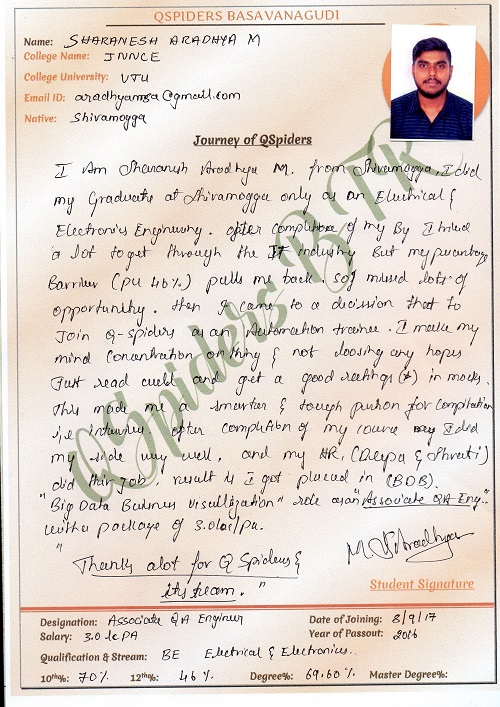 QSPIDERS BASAVANAGUDI
Name: SHARANESH ARADHYA M
College Name: JNNCE
College University: VTU
Email ID: aradhyamsa@gmail.com
Native: Shivamogga
Journey of QSpiders
I Am Sharanesh Aradhya M. from Shivamogga, I did
my Graduate at Shivamogga only as an Electrical &
Electronics Engineering. after completion of my By I tried
a lot to get through the IT industry But my percentage
Barrier (PU 46%) pulls me back. so I missed lots of
opportunity. then I came to a decision that to
Join Q-spiders as an Automation trainee. I make my
mind Concentration on thing & not loosing any hopes
Just read well and get a good ratings (*) in mocks.
This made me a smarter & tough person for Compitation
i.e industry. after completion of my course I did
my side very well, and my HR, (Deepa & Shruti)
did thier job, result is I got placed in (BDB).
"Big Data Business Visullization" role as an "Associate QA Eng.."
with a package of 3.0lac/pa.
"Thanks alot for Q Spiders &
its team."
M. S Aradhya
Student Signature
QSpiders BTR
Designation: Associate QA Engineer
Date of Joining: 8/9/17
Salary: 3.0 lc PA
Year of Passout: 2016
Qualification & Stream: BE Electrical & Electronics.
10th%: 70% 12th%: 46% Degree%: 69.60% Master Degree%: